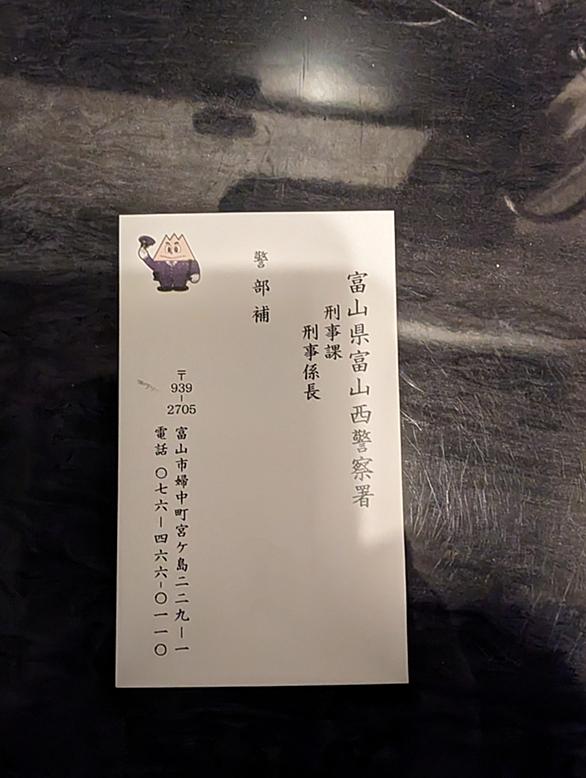 富山県富山西警察署
刑事課
刑事係長
警部補
〒939-2705
富山市婦中町宮ケ島二二九ー一
電話 〇七六ー四六六ー〇一一〇